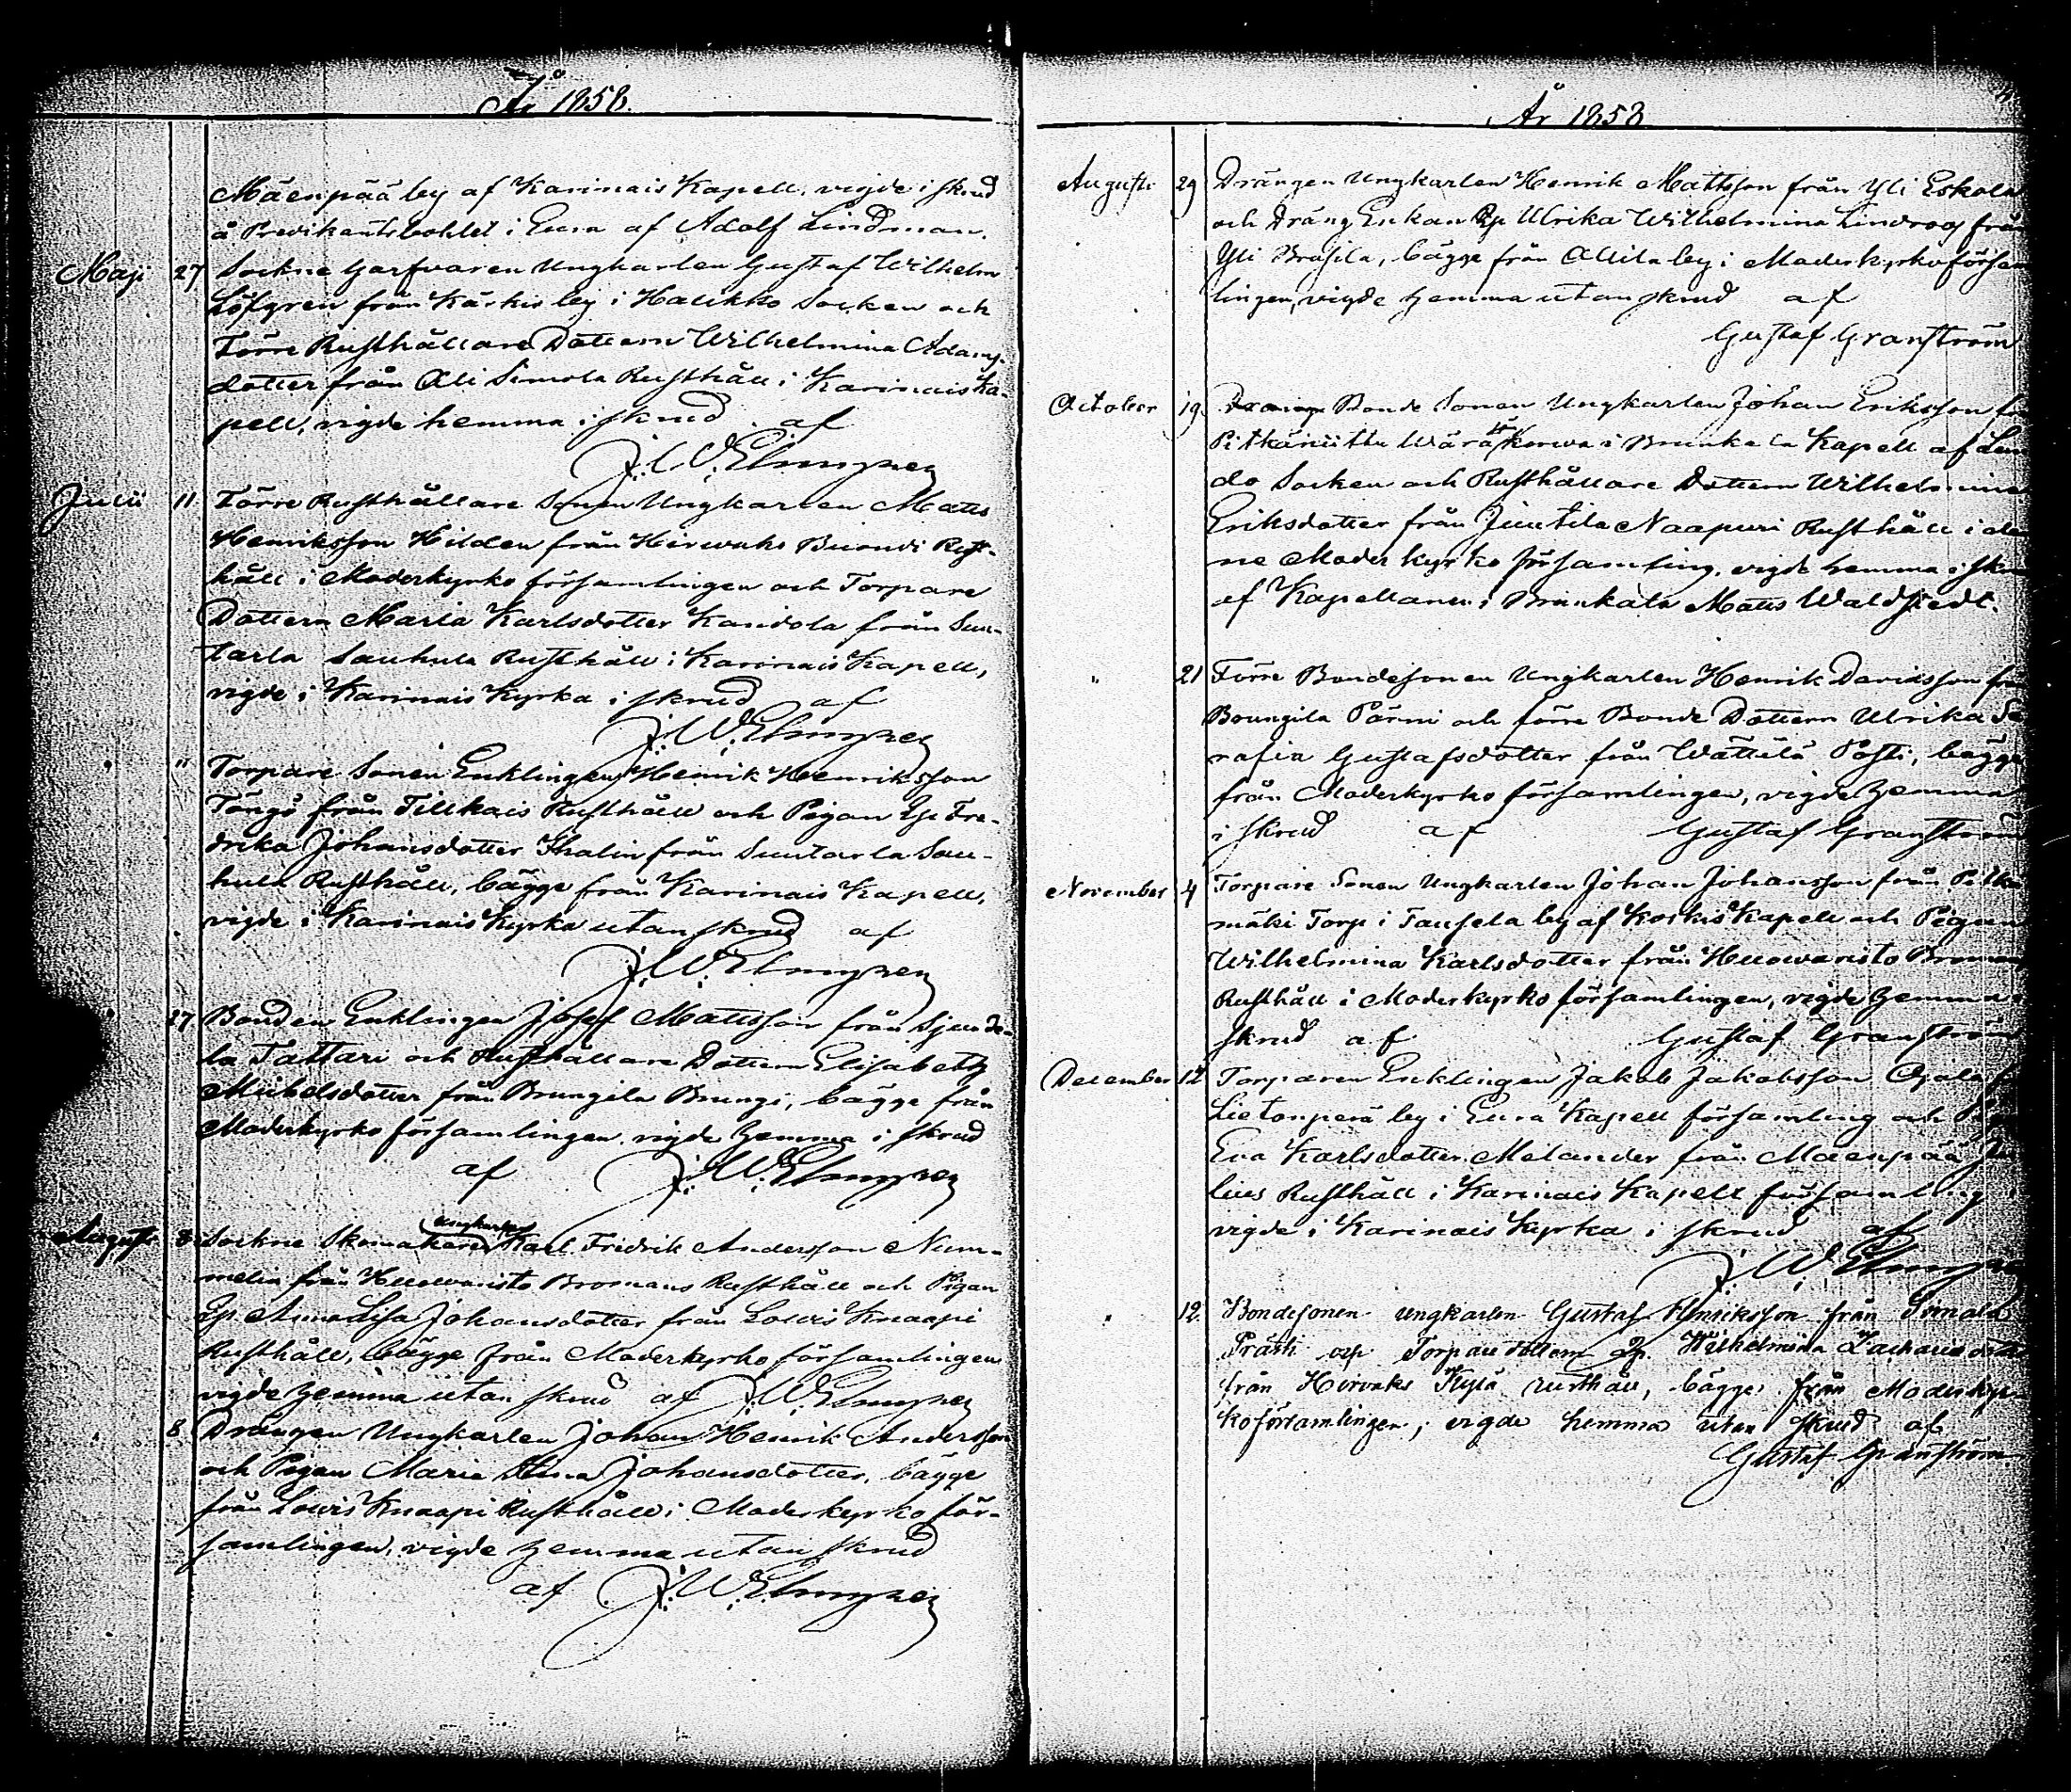 År 1858.
Mäenpää by af Karinais Kapell, vigde i skrud
å Predikantsbohlet i Eura af Adolf Lindman.
Maji 27 Sockne Garfvaren Ungkarlen Gustaf Wilhelm
Löfgren från Kärkis by i Halikko Socken och
Förre Rusthållare Dottern Wilhelmina Adams-
dotter från Ali Simola Rusthåll i Karinais Ka-
pell, vigde hemma i skrud af
J. W. Elmgren
Julii 11 Förre Rusthållare Sonen Ungkarlen Matts
Henriksson Hilden från Hirwaks Buondi Rust-
håll i Moderkyrko församlingen och Torpare
Dottern Maria Karlsdotter Kandola från Suu-
tarla Sauhula Rusthåll i Karinais Kapell,
vigde i Karinais Kyrka i skrud af
J. W. Elmgren
" " Torpare Sonen Enklingen Henrik Henriksson
Töngö från Tillkais Rusthåll och Pigan Ep. Fre-
drika Johansdotter Thalin från Suutarla Sau-
hula Rusthåll, bägge från Karinais Kapell,
vigde i Karinais Kyrka utan skrud af
J. W. Elmgren
" 27 Bonden Enklingen Josef Mattsson från Sjunde-
la Tattari och Rusthållare Dottern Elisabeth
Michelsdotter från Brungila Brungi, bägge från
Moderkyrko församlingen, vigde hemma i skrud
af J. W. Elmgren
Augusti 8 Sockne Skomakaren Ungkarlen Karl Fredrik Andersson Num-
melin från Huowaristo Bromans Rusthåll och Pigan
Ep. Anna Lisa Johansdotter från Lowis Knaapi
Rusthåll, bägge från Moderkyrko församlingen
vigde hemma utan skrud af J. W. Elmgren
" 8 Drängen Ungkarlen Johan Henrik Andersson
och Pigan Maria Stina Johansdotter, bägge
från Lowis Knaapi Rusthåll i Moderkyrko för-
samlingen, vigde hemma utan skrud
af J. W. Elmgren
År 1858
Augusti 29 Drängen Ungkarlen Henrik Mattsson från Yli Eskola
och Dräng Enkan Ep Ulrika Wilhelmina Lindroos från
Yli Brasila, bägge från Allila by i Moderkyrkoförsam
lingen, vigde hemma utan skrud af
Gustaf Granström
October 19. Bonde Sonen Ungkarlen Johan Eriksson
Pitkäniittu i Brunkala Kapell af Lun
do Socken och Rusthållare Dottern Wilhelmina
Eriksdotter från Juutila Naapuri Rusthåll i den
ne Moder kyrko församling, vigde hemma i skrud
af Kapellanen i Brunkala Matts Waldstedt.
" 21 Förre Bondesonen Ungkarlen Henrik Davidsson från
Brungila Pärni och förre Bonde Dottern Ulrika Se
rafia Gustafsdotter från Wättilä Posti, bägge
från Moderkyrko församlingen, vigde hemma
i skrud af Gustaf Granström
November 4 Torpare Sonen Ungkarlen Johan Johansson från Pitkä
mäki Torp i Taufela by af Koskis Kapell och Pigan
Wilhelmina Karlsdotter från Huowaristo Bromans
Rusthåll i Moderkyrko församlingen, vigde hemma i
skrud af Gustaf Granström
December 12 Torparen Enklingen Jakob Jakobsson Ojala
Lietonperä by i Eura Kapell församling och
Eva Karlsdotter Melander från Mäenpää
lius Rusthåll i Karinais Kapell församling
vigde i Karinais Kyrka i skrud af
J. W. Elmgren
" 12. Bondesonen ungkarlen Gustaf Henriksson från Tomola
Prästi och Torparedottern Ep. Wilhelmina Zachariasdotter
från Hirvaks Kylä rusthåll, bägge från Moderkyr
koförsamlingen, vigde hemma utan skrud af
Gustaf Granström